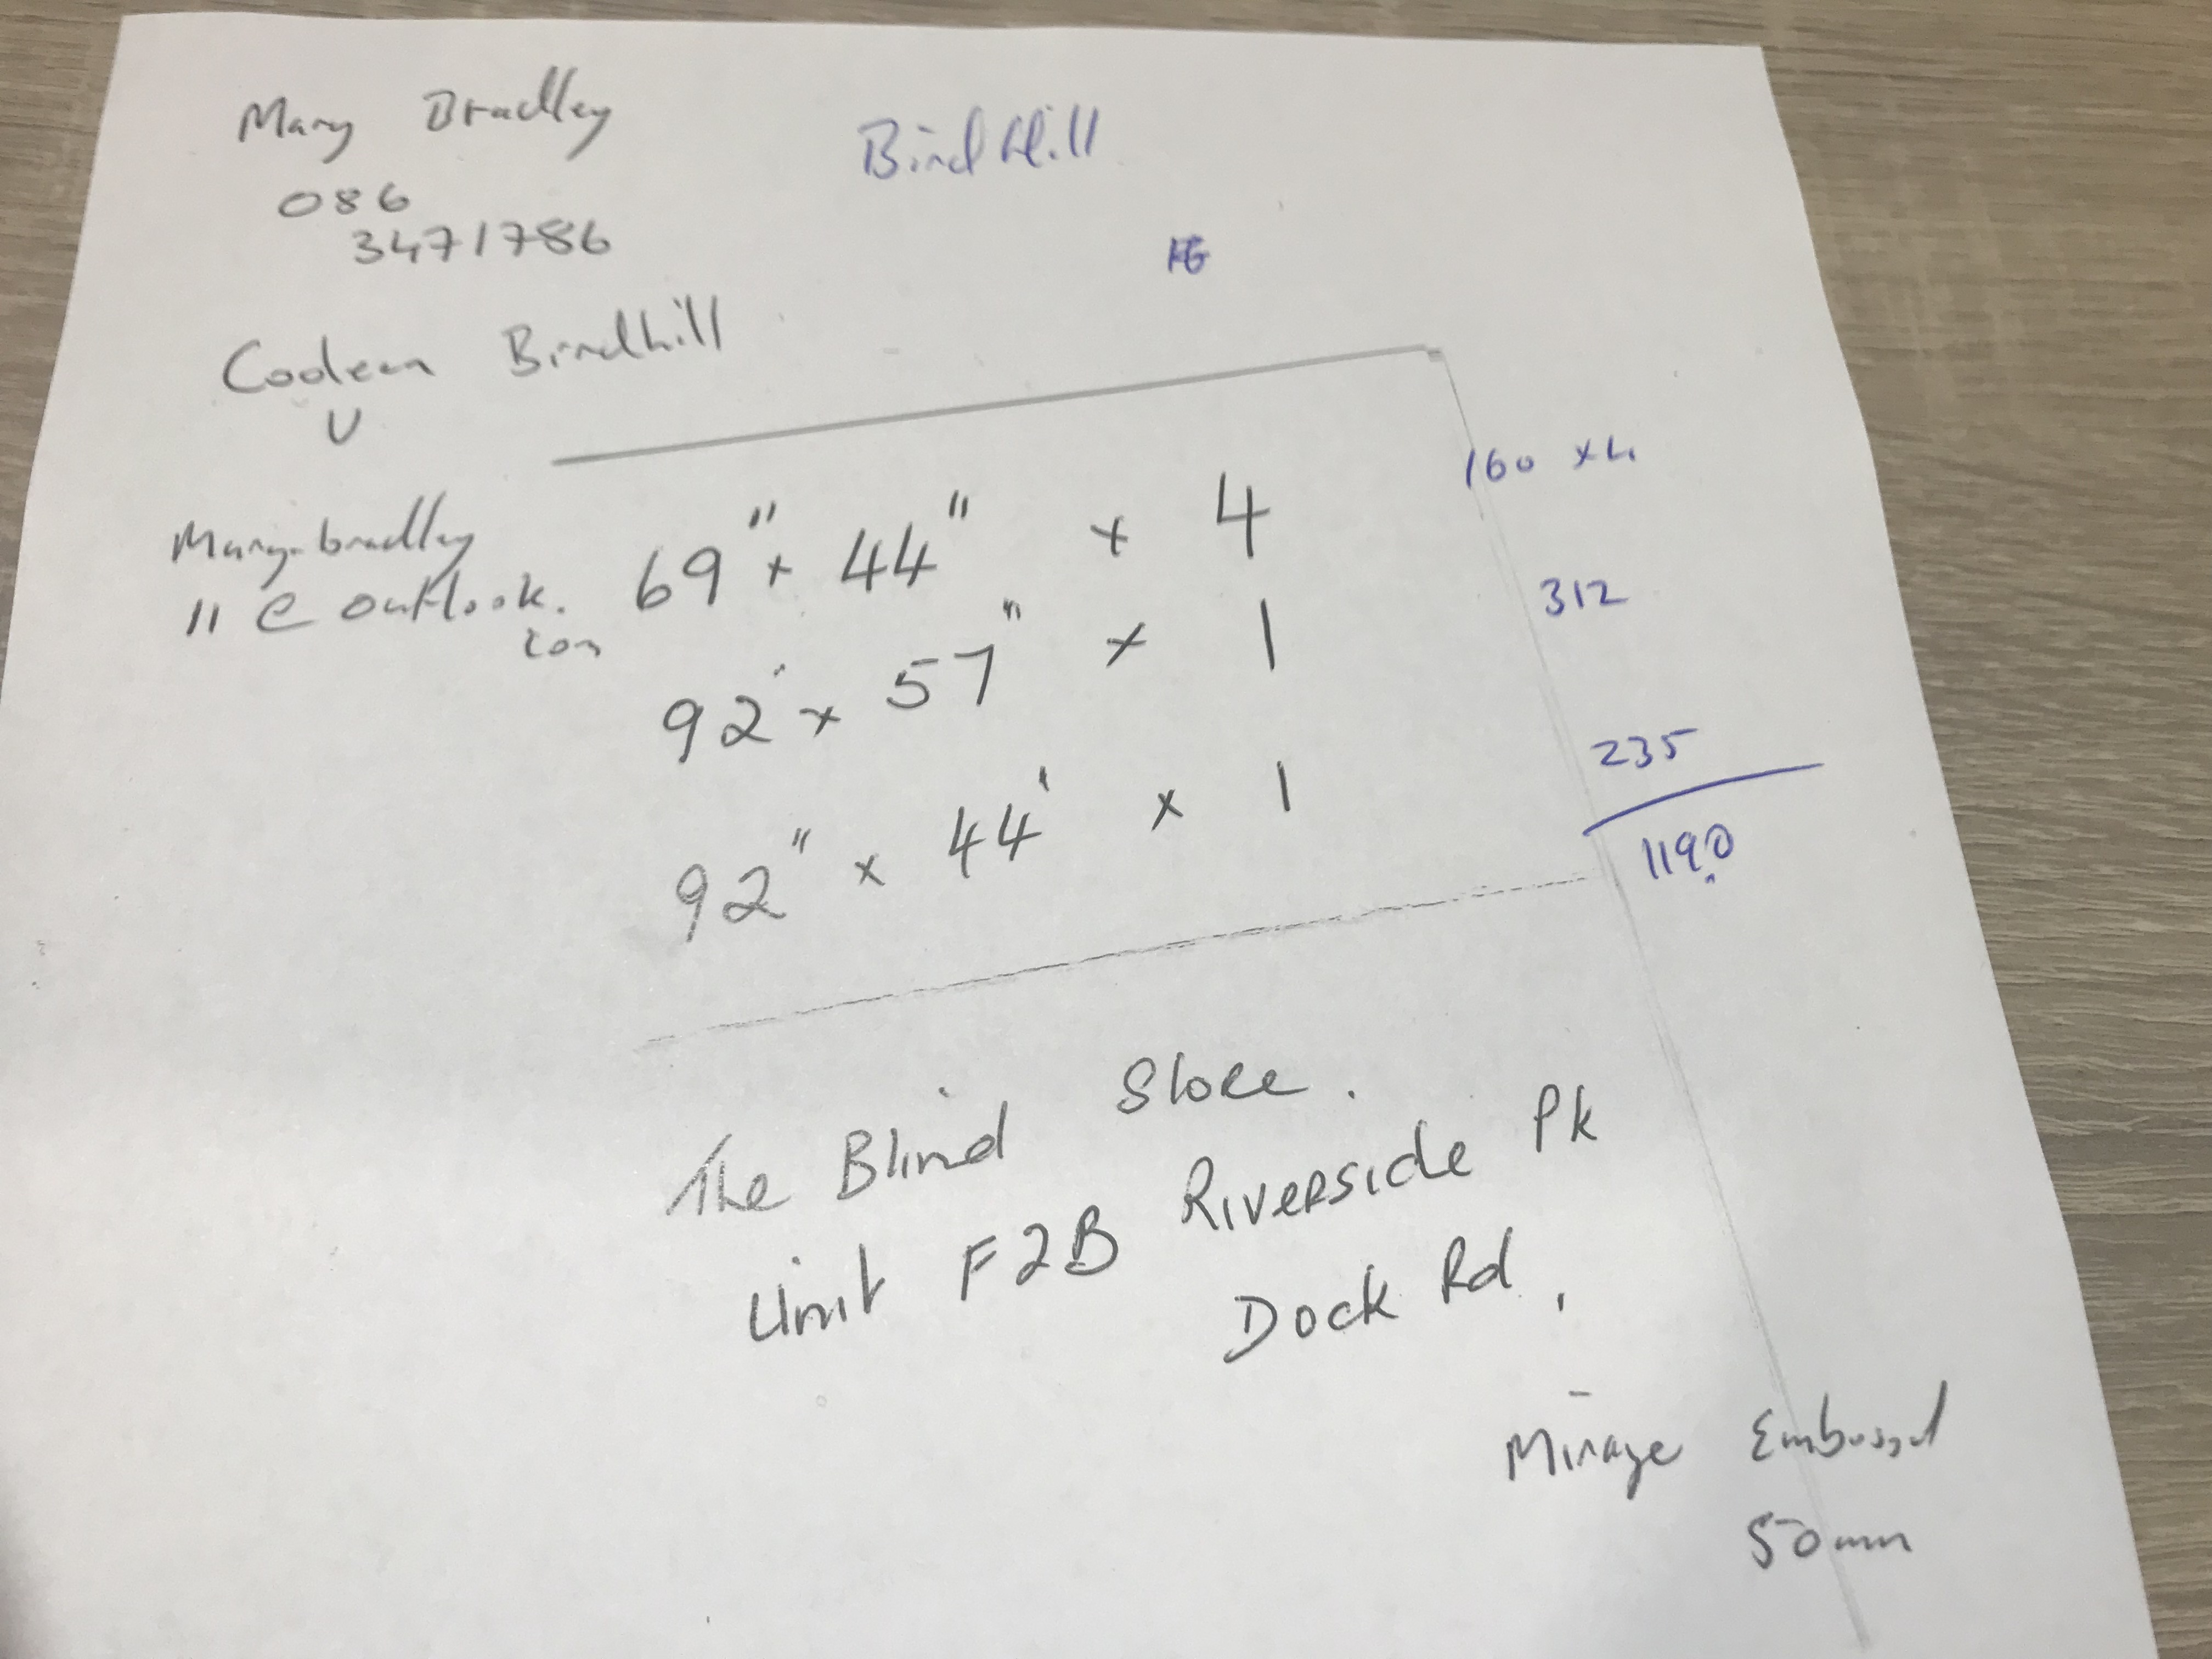 Mary Bradley
Bird Hill
086
3471786
Coolean Birdhill
U
160 x 4
Mary.bradley
69" x 44" x 4
" @ outlook.
com
312
92" x 57" x 1
235
92" x 44" x 1
1190
The Blind Store.
Unit F2B Riverside Pk
Dock Rd,
Mirage Embossed
50mm